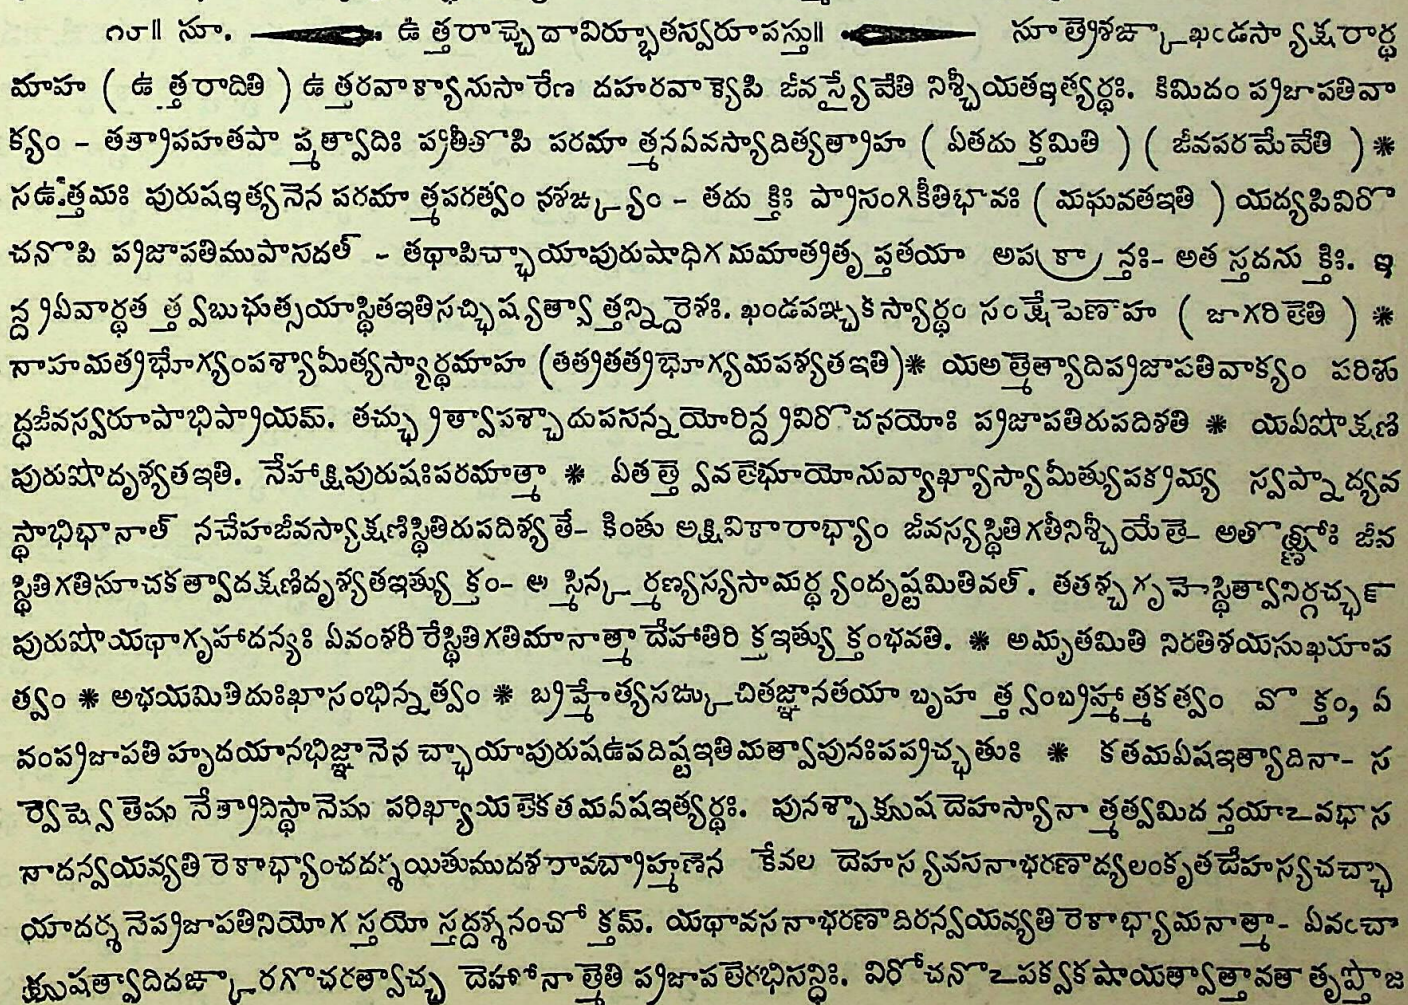 ౧౮॥ సూ. ఉత్తరాచ్చేదావిర్భూతస్వరూపస్తు॥ సూత్రేశఙ్కాఖండస్యాక్షరార్థ
మాహ ( ఉత్తరాదితి ) ఉత్తరవాక్యానుసారేణ దహరవాక్యేపి జీవస్యైవేతి నిశ్చీయతఇత్యర్థః. కిమిదం ప్రజాపతివా
క్యం - తత్రాపహతపాప్మత్వాదిః ప్రతీతోపి పరమాత్మనఏవస్యాదిత్యత్రాహ ( ఏతదుక్తమితి ) ( జీవపరమేవేతి ) *
సఉత్తమః పురుషఇత్యనేన పరమాత్మపరత్వం నశఙ్క్యం - తదుక్తిః ప్రాసంగికీతిభావః ( మఘవతఇతి ) యద్యపివిరో
చనోపి ప్రజాపతిముపాసదత్ - తథాపిచ్ఛాయాపురుషాధిగమమాత్రతృప్తతయా అపక్రాన్తః- అతస్తదనుక్తిః. ఇ
న్ద్రఏవార్థతత్త్వబుభుత్సయాస్థితఇతిసచ్ఛిష్యత్వాత్తన్నిర్దేశః. ఖండపఞ్చకస్యార్థం సంక్షేపేణాహ ( జాగరితేతి ) *
నాహమత్రభోగ్యంపశ్యామీత్యస్యార్థమాహ (తత్రతత్రభోగ్యమపశ్యతఇతి)* యఆత్మేత్యాదిప్రజాపతివాక్యం పరిశు
ద్ధజీవస్వరూపాభిప్రాయమ్. తచ్ఛ్రుత్వాపశ్చాదుపసన్నయోరిన్ద్రవిరోచనయోః ప్రజాపతిరుపదిశతి * యఏషోక్షణి
పురుషోదృశ్యతఇతి. నేహాక్షిపురుషఃపరమాత్మా * ఏతత్త్వేవతేభూయోనువ్యాఖ్యాస్యామీత్యుపక్రమ్య స్వప్నాద్యవ
స్థాభిధానాత్ నచేహజీవస్యాక్షణిస్థితిరుపదిశ్యతే- కింతు అక్షివికారాభ్యాం జీవస్యస్థితిగతీనిశ్చీయేతే- అతోక్ష్ణోః జీవ
స్థితిగతిసూచకత్వాదక్షణిదృశ్యతఇత్యుక్తం- అస్మిన్కర్మణ్యస్యసామర్థ్యందృష్టమితివత్. తతశ్చగృహేస్థిత్వానిర్గచ్ఛన్
పురుషోయథాగృహాదన్యః ఏవంశరీరేస్థితిగతిమానాత్మాదేహాతిరిక్తఇత్యుక్తంభవతి. * అమృతమితి నిరతిశయసుఖరూప
త్వం * అభయమితిదుఃఖాసంభిన్నత్వం * బ్రహ్మేత్యసఙ్కుచితజ్ఞానతయా బృహత్త్వంబ్రహ్మాత్మకత్వం వోక్తం, ఏ
వంప్రజాపతిహృదయానభిజ్ఞానేన చ్ఛాయాపురుషఉపదిష్టఇతిమత్వాపునఃపప్రచ్ఛతుః * కతమఏషఇత్యాదినా- స
ర్వేష్వేతేషు నేత్రాదిస్థానేషు పరిఖ్యాయతేకతమఏషఇత్యర్థః. పునశ్చాక్షుషదేహస్యానాత్మత్వమిదన్తయాఽవభాస
నాదన్వయవ్యతిరేకాభ్యాంచదర్శయితుముదశరావబ్రాహ్మణేన కేవలదేహస్యవసనాభరణాద్యలంకృతదేహస్యచచ్ఛా
యాదర్శనేప్రజాపతినియోగస్తయోస్తద్దర్శనంచోక్తమ్. యథావసనాభరణాదిరన్వయవ్యతిరేకాభ్యామనాత్మా- ఏవంచా
క్షుషత్వాదిదఙ్కారగోచరత్వాచ్చ దేహోనాత్మేతి ప్రజాపతేరభిసన్ధిః. విరోచనోఽపక్వకషాయత్వాత్తావతాతృప్తోజ